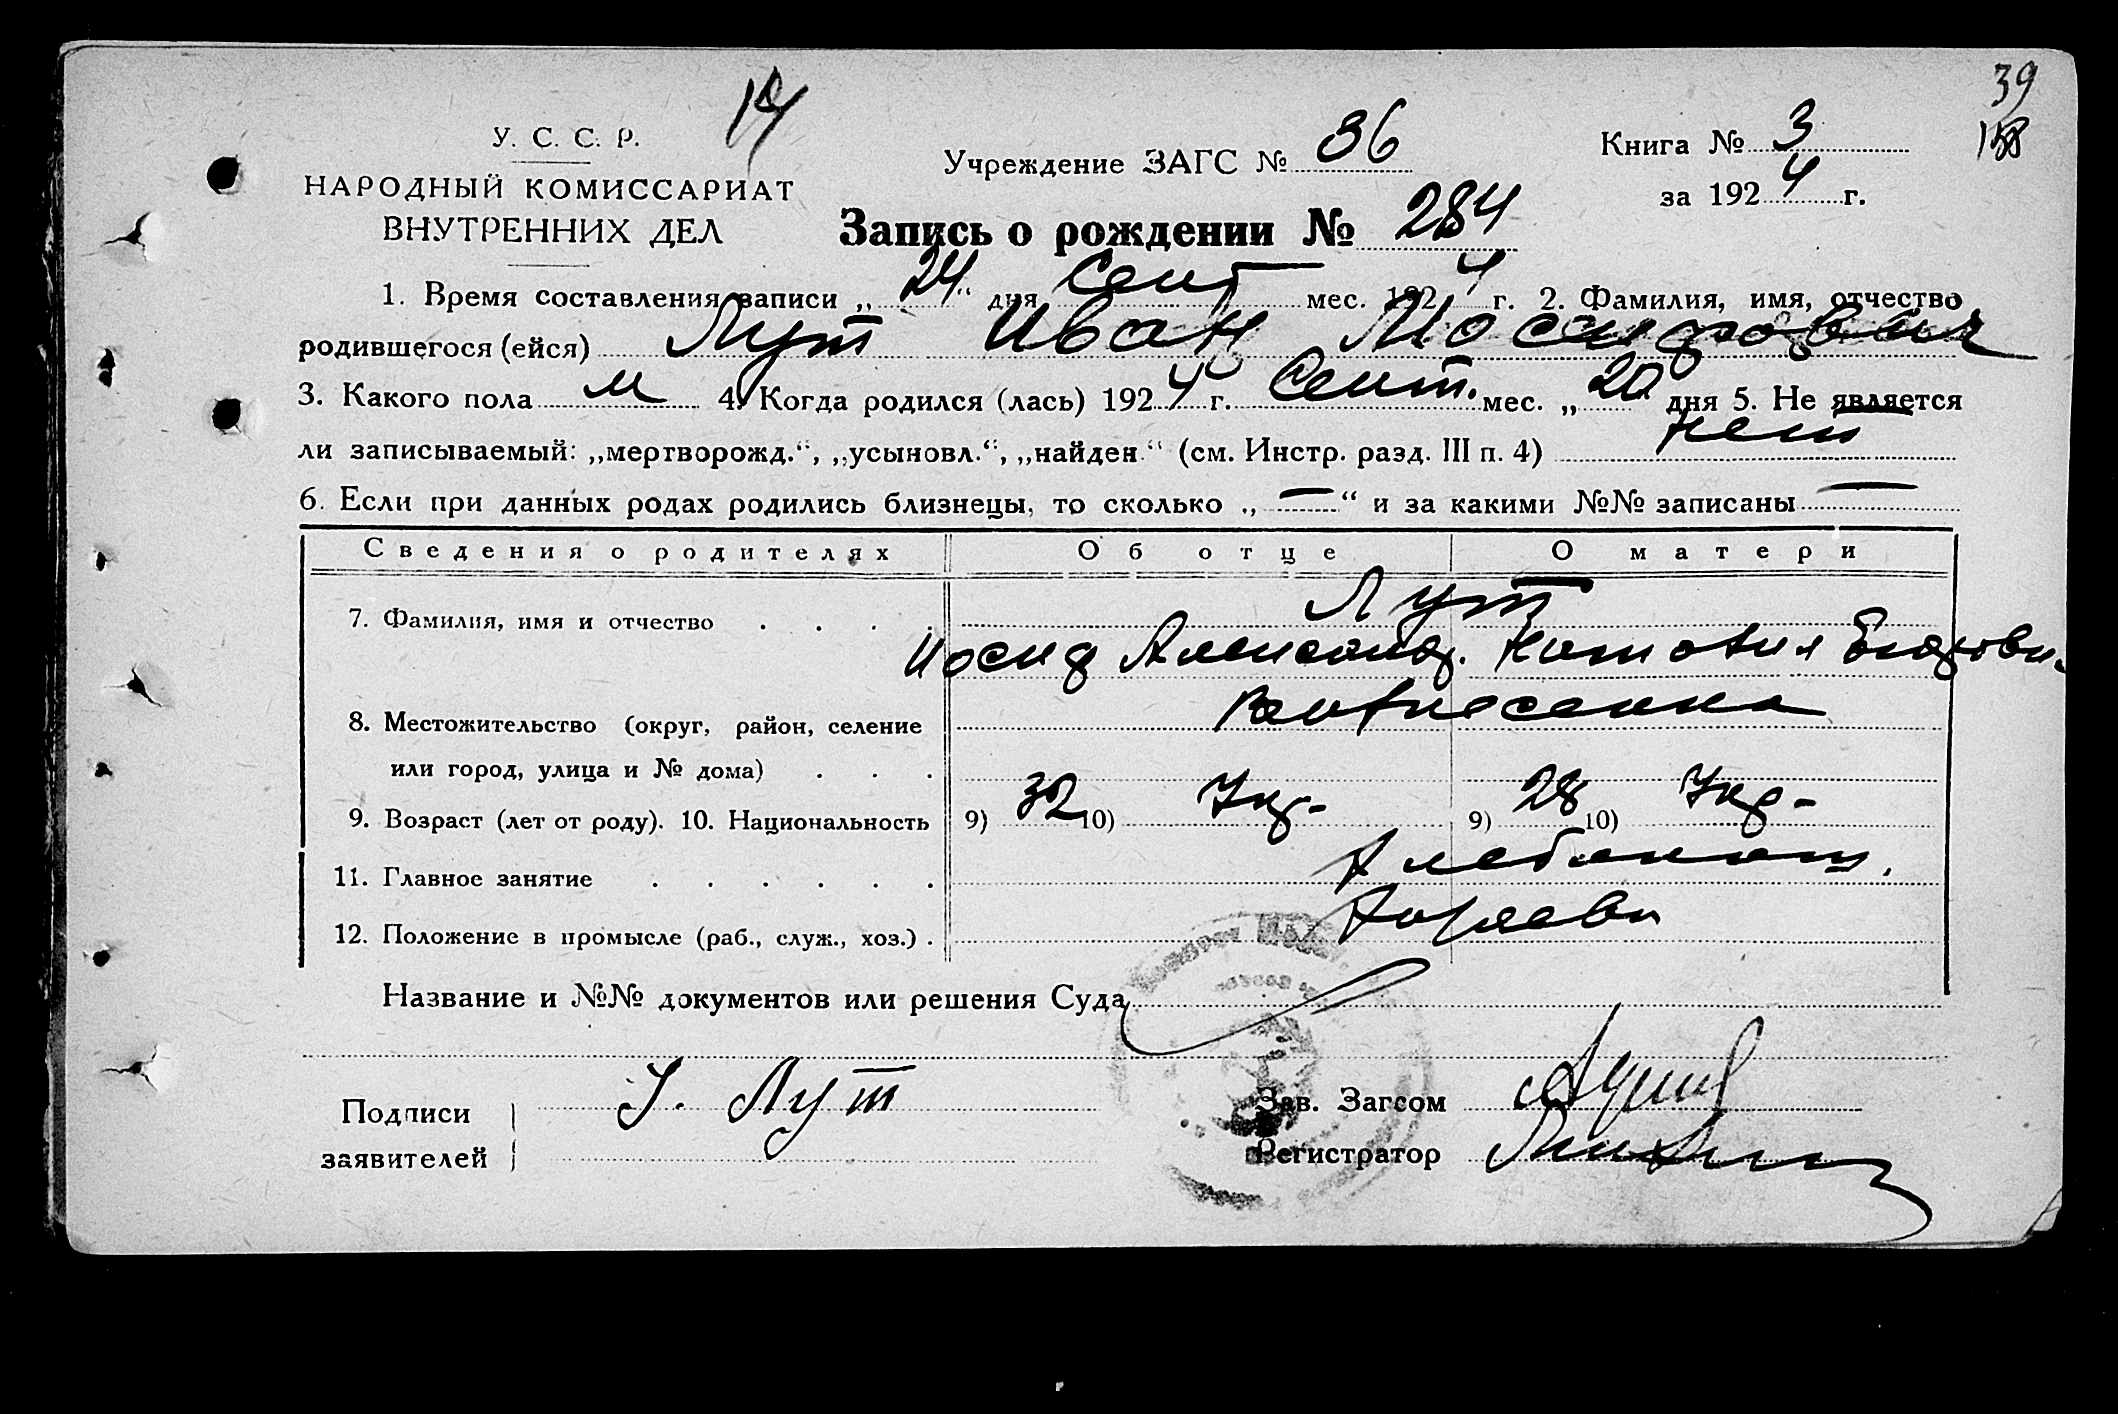 39
14
У. С. С. Р.
НАРОДНЫЙ КОМИССАРИАТ
ВНУТРЕННИХ ДЕЛ
Учреждение ЗАГС № 36
Книга № 3
за 1924 г.
Запись о рождении № 284
1. Время составления записи „24“ дня Сент мес. 1924 г. 2. Фамилия, имя, отчество
родившегося (ейся) Лут Иван Иосифович
3. Какого пола м 4. Когда родился (лась) 1924 г. Сент. мес. „20 дня 5. Не является
ли записываемый: „мертворожд.“, „усыновл.“, „найден.“ (см. Инстр. разд. III п. 4) нет
6. Если при данных родах родились близнецы, то сколько „—“ и за какими №№ записаны —
Сведения о родителях Об отце О матери
Лут
7. Фамилия, имя и отчество . . . .
Иосиф Александ.
8. Местожительство (округ, район, селение Вознесенка
или город, улица и № дома) . . .
9. Возраст (лет от роду). 10. Национальность 9) 32 10) Укр- 9) 28 10) Укр-
11. Главное занятие . . . . . . Хлебопаш.
12. Положение в промысле (раб., служ., хоз.) . Хозяева
Название и №№ документов или решения Суда
Подписи заявителей И. Лут
Зав. Загсом
Регистратор